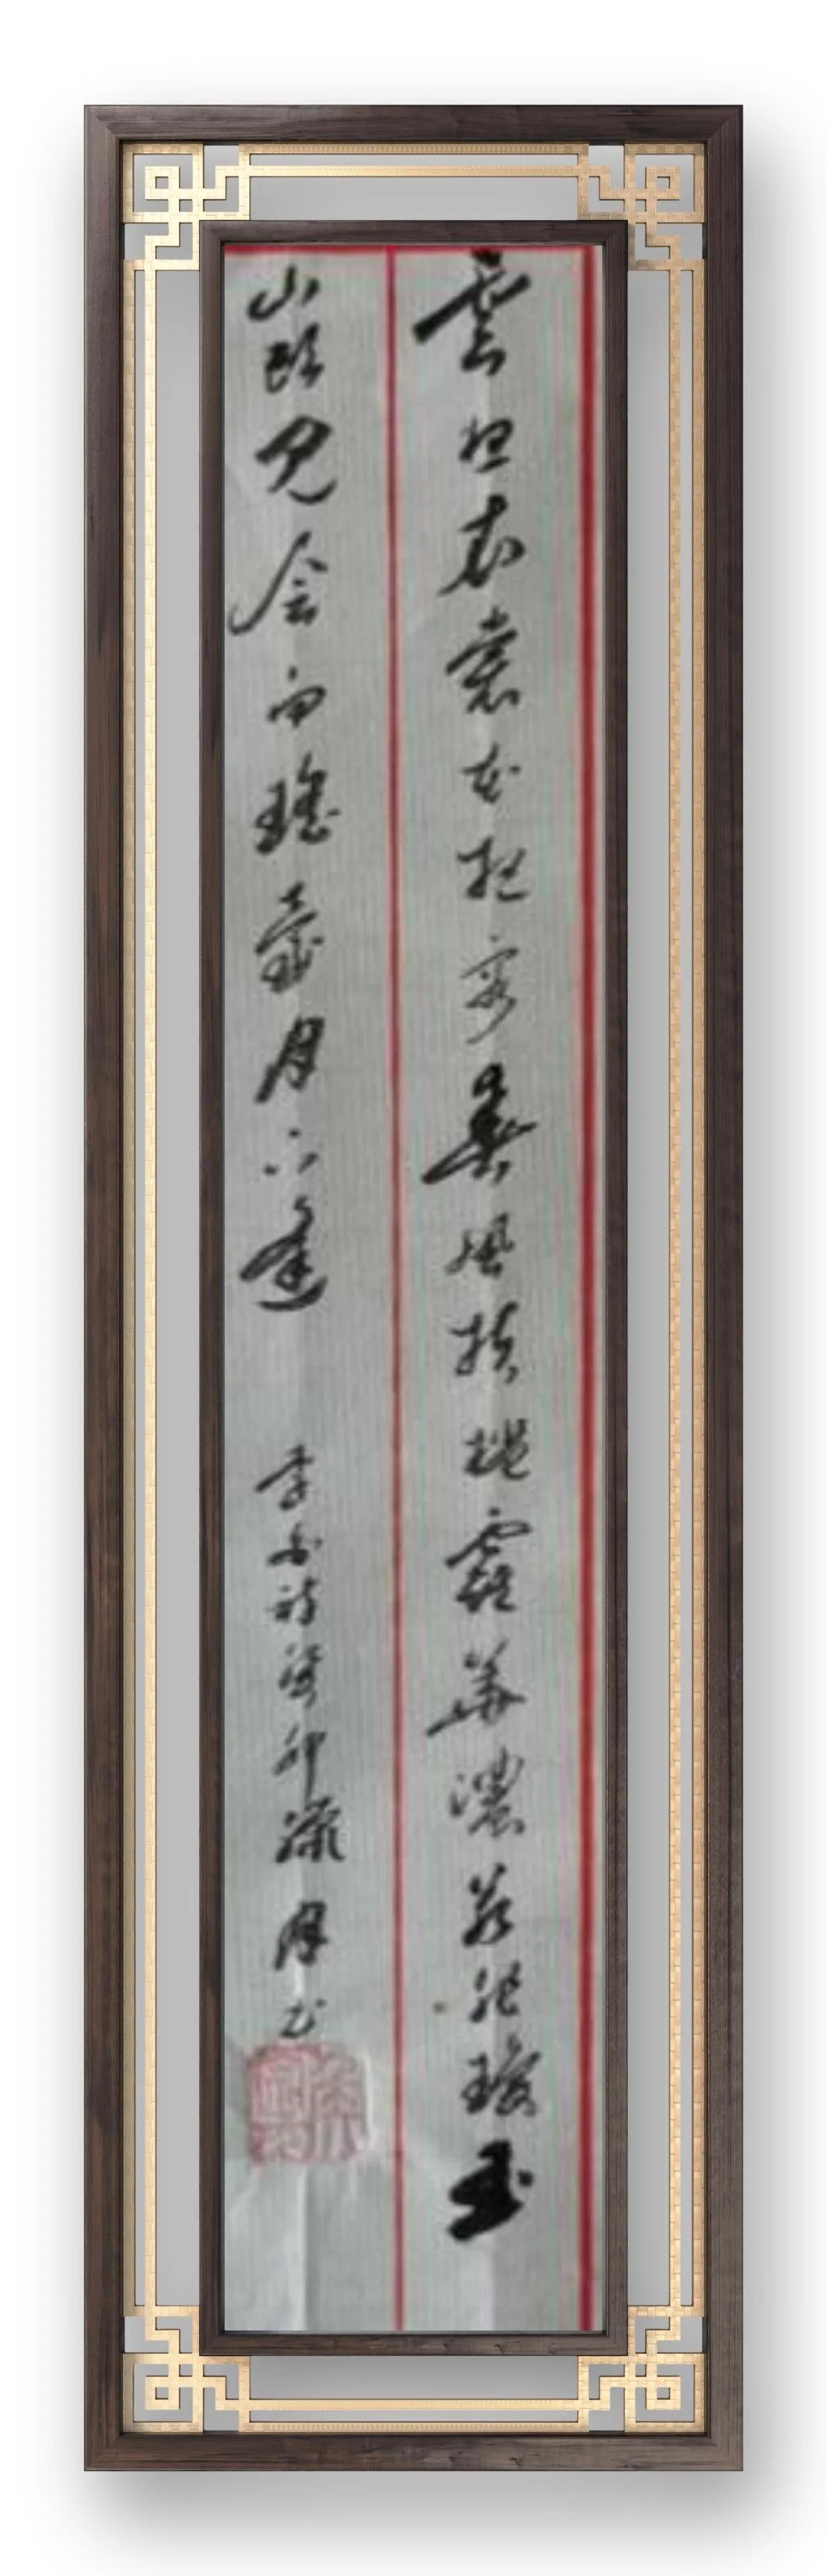 雲想衣裳花想容春風拂檻露華濃若非瓊玉
山頭見会向瑤臺月下逢 李白詩癸卯月书